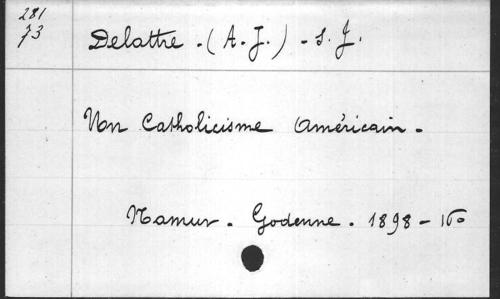 281
73
Delattre. (A. J.) - S. J.
Un Catholicisme Américain.
Namur. Godenne. 1898 - 16º